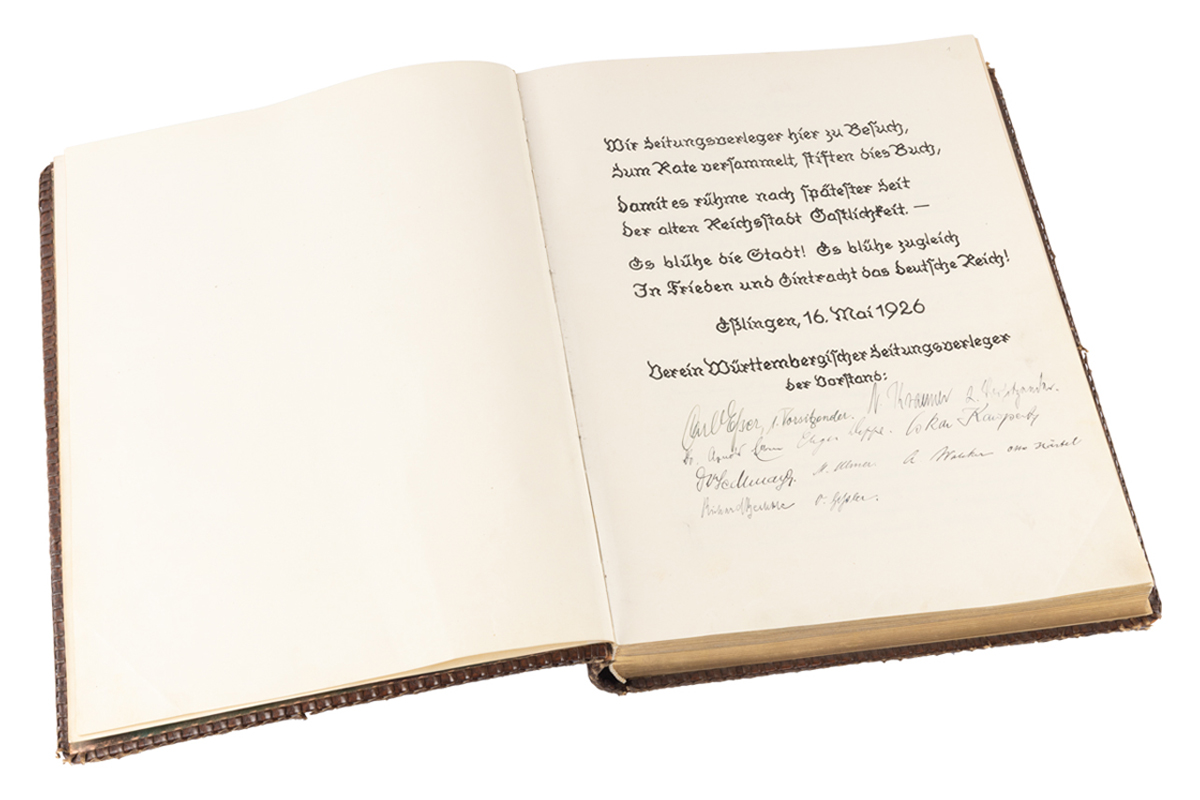 Wir Zeitungsverleger hier zu Besuch,
Zum Rate versammelt, stiften dies Buch,
Damit es rühme nach spätester Zeit
Der alten Reichsstadt Gastlichkeit. —
Es blühe die Stadt! Es blühe zugleich
In Frieden und Eintracht das Deutsche Reich!
Eßlingen, 16. Mai 1926
Verein Württembergischer Zeitungsverleger
Der Vorstand:
Carl Esser, 1. Vorsitzender. N. Kramer 2. Vorsitzender.
Dr. Arnold Eugen Oskar
Otto
Richard